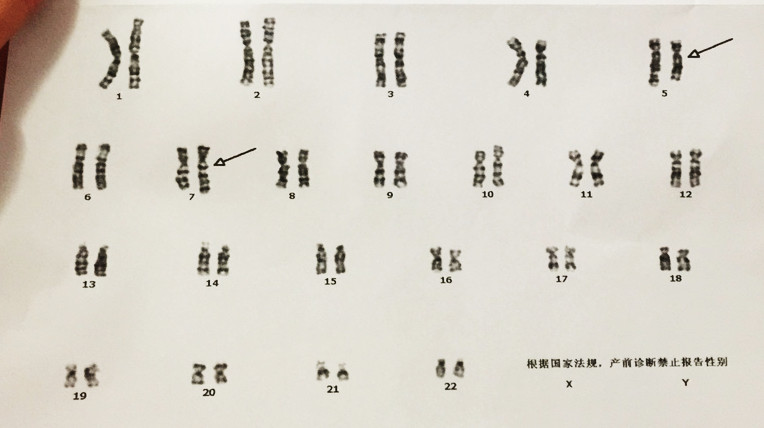 1 2 3 4 5
6 7 8 9 10 11 12
13 14 15 16 17 18
根据国家法规，产前诊断禁止报告性别
19 20 21 22 X Y